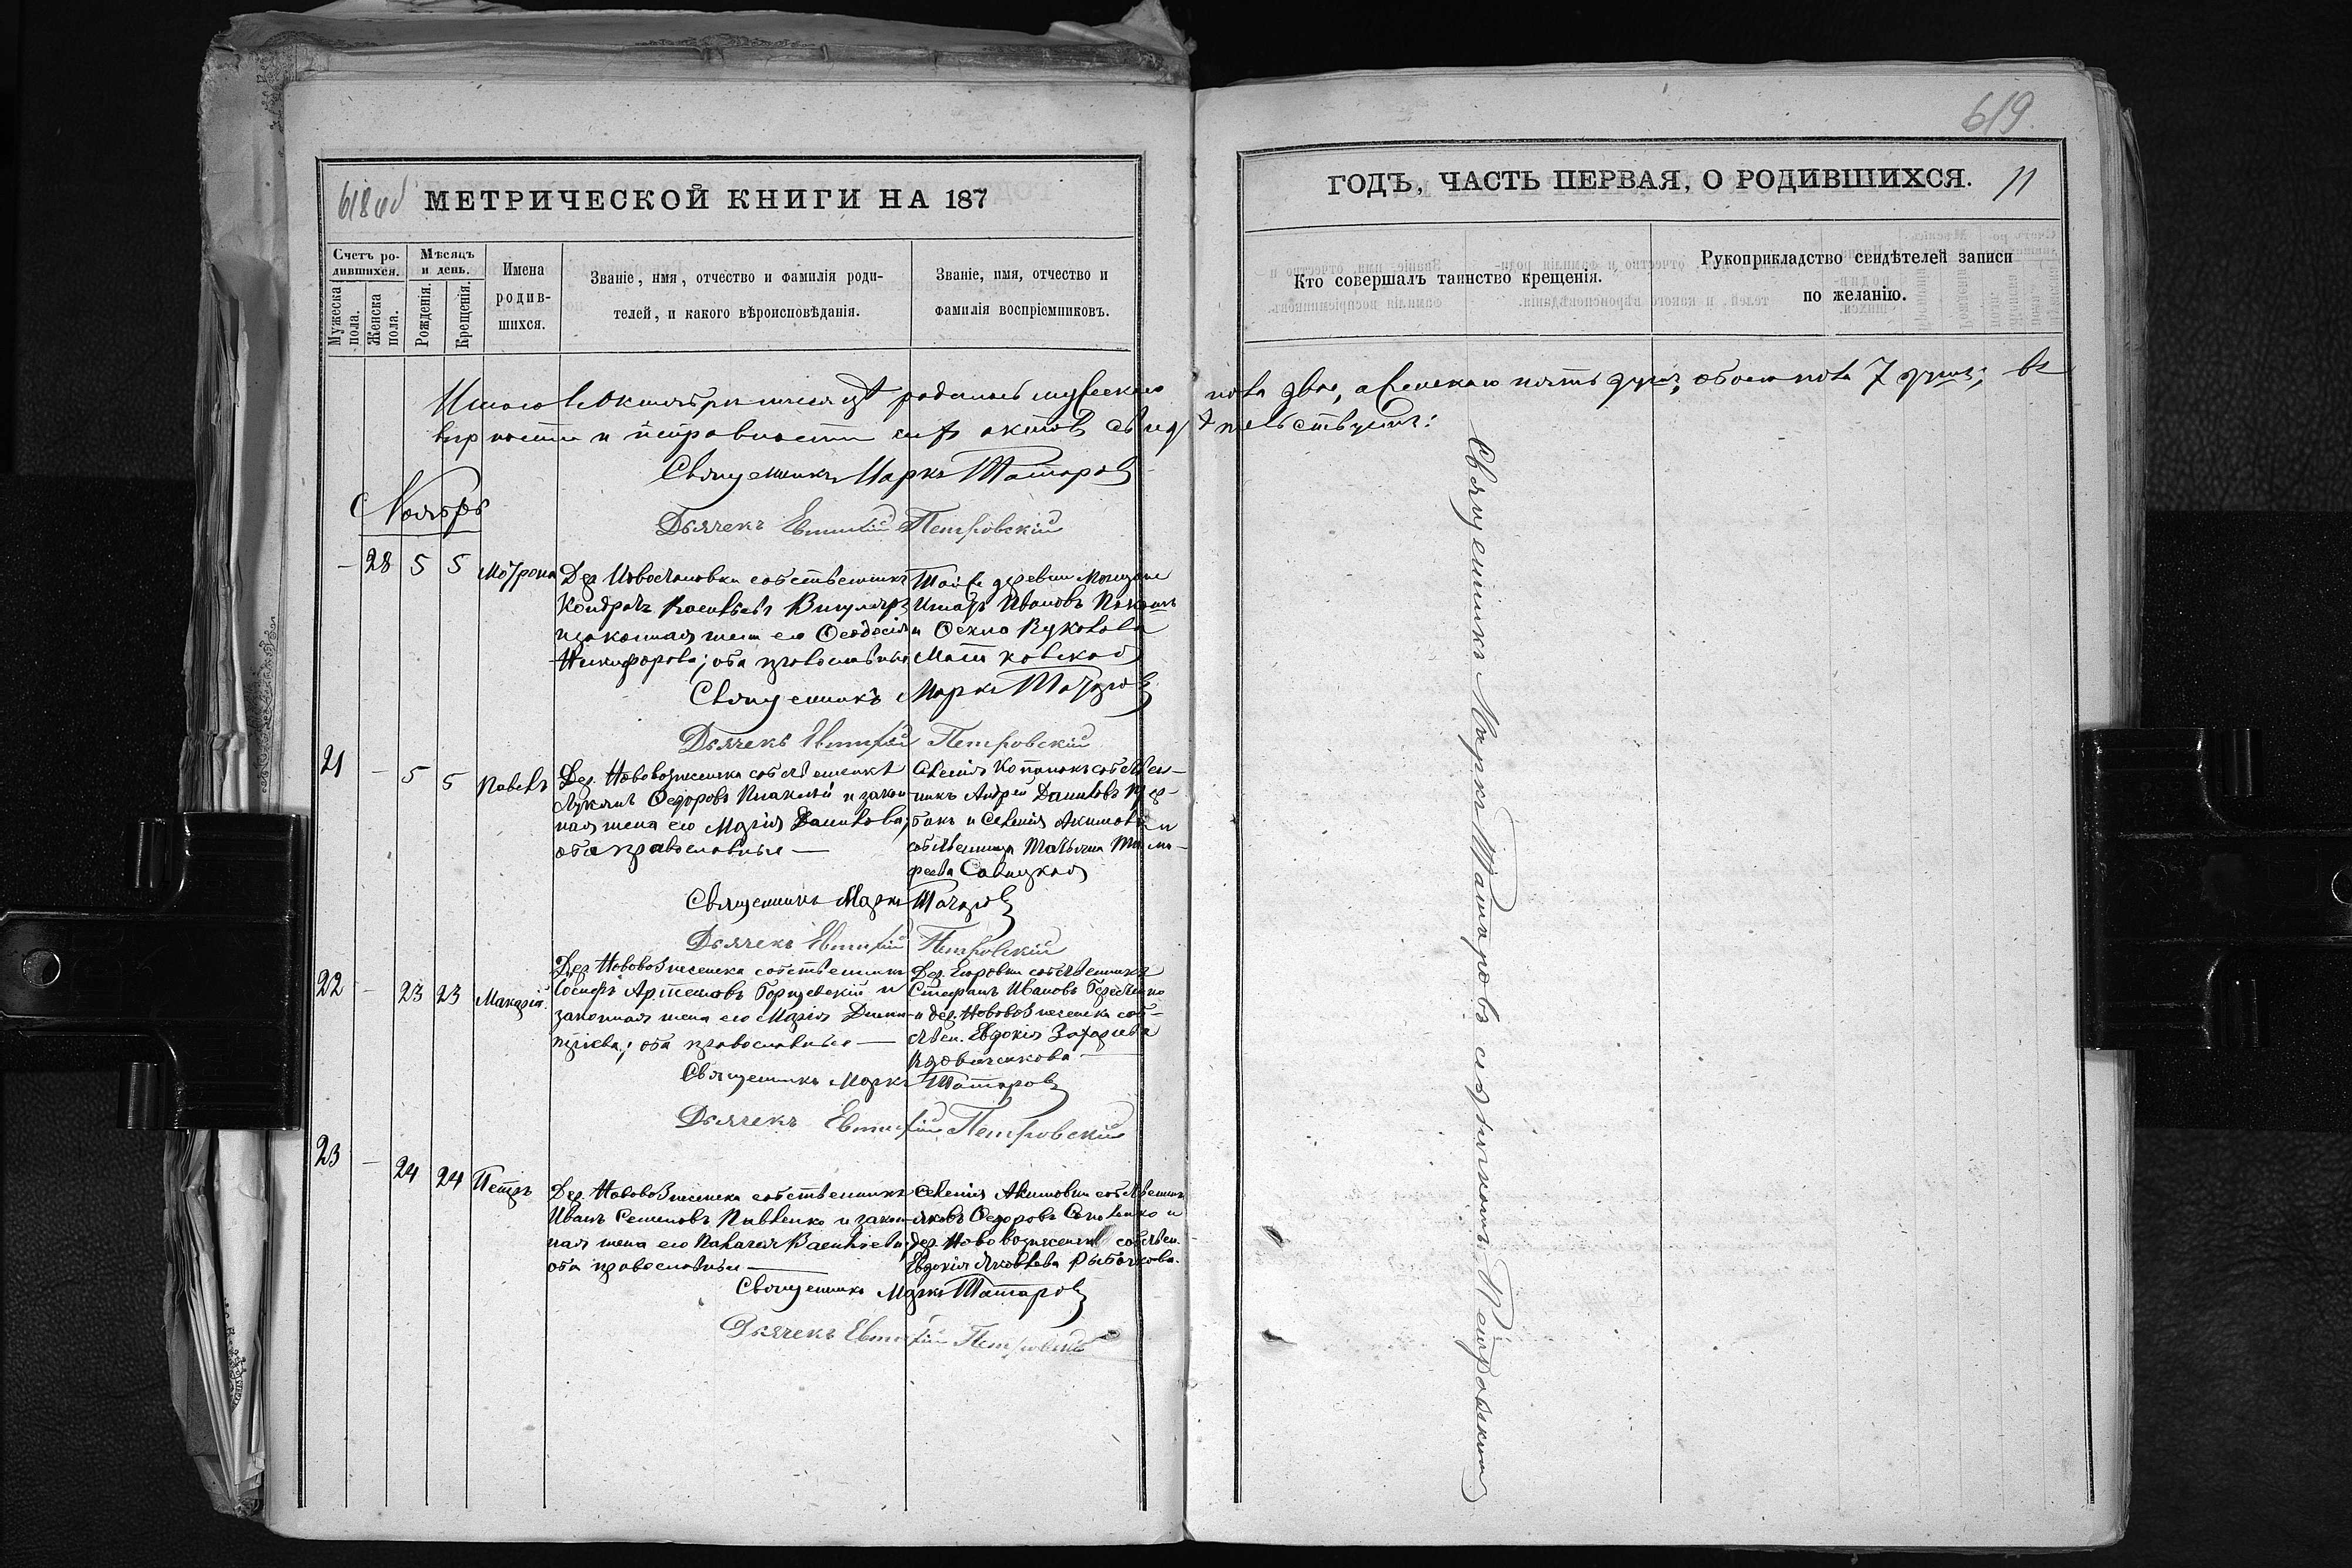 619.
618 об
МЕТРИЧЕСКОЙ КНИГИ НА 187
ГОДЪ, ЧАСТЬ ПЕРВАЯ, О РОДИВШИХСЯ.
11
Счетъ ро-
дившихся.
Мужеска
пола.
Женска
пола.
Мѣсяцъ
и день.
Рожденія.
Крещенія.
Имена
родив-
шихся.
Званіе, имя, отчество и фамилія роди-
телей, и какого вѣроисповѣданія.
Званіе, имя, отчество и
фамилія воспріемниковъ.
Кто совершалъ таинство крещенія.
Рукоприкладство свидѣтелей записи
по желанію.
Итого въ Октябрѣ мѣсяцѣ родилось мужескаго пола двое, а женскаго пять душъ, обоего пола 7 душъ; въ
вѣрности и исправности сихъ актовъ свидѣтельствуютъ:
Священникъ Маркъ Татаровъ
Дьячекъ Евтихій Петровскій
Ноябрь
— 28 5 5 Мотрона
Дер. собственникъ
Кондратъ Васильевъ
законная жена его Ѳеодосія
Никифорова; оба православные
Той же деревни
Ивановъ
и Ѳекла
Священникъ Маркъ Татаровъ
Дьячекъ Евтихій Петровскій
21 — 5 5 Павелъ
Дер. Нововознесенка собственникъ
Лукіанъ Ѳедоровъ и закон-
ная жена его Марія Данилова;
оба православные —
Селенія собствен-
никъ Андрей Даниловъ
и селенія Акимовки
собственница Татьяна Тимо-
феева Савицкая
Священникъ Маркъ Татаровъ
Дьячекъ Евтихій Петровскій
22 — 23 23 Макарій
Дер. Нововознесенка собственникъ
Іосифъ Артемовъ Борщевскій и
законная жена его Марія Дими-
тріева; оба православные —
Дер. собственникъ
Стефанъ Ивановъ
и дер. Нововознесенка соб-
ствен. Евдокія Захаріева
Священникъ Маркъ Татаровъ
Дьячекъ Евтихій Петровскій
23 — 24 24 Петръ
Дер. Нововознесенка собственникъ
Иванъ Семеновъ Павленко и закон-
ная жена его Палагея Васильева;
оба православные —
Селенія Акимовки собственникъ
Яковъ Ѳедоровъ и
дер. Нововознесенки собствен.
Евдокія Яковлева Рыбачкова.
Священникъ Маркъ Татаровъ
Дьячекъ Евтихій Петровскій
Священникъ Маркъ Татаровъ съ дьячкомъ Петровскимъ